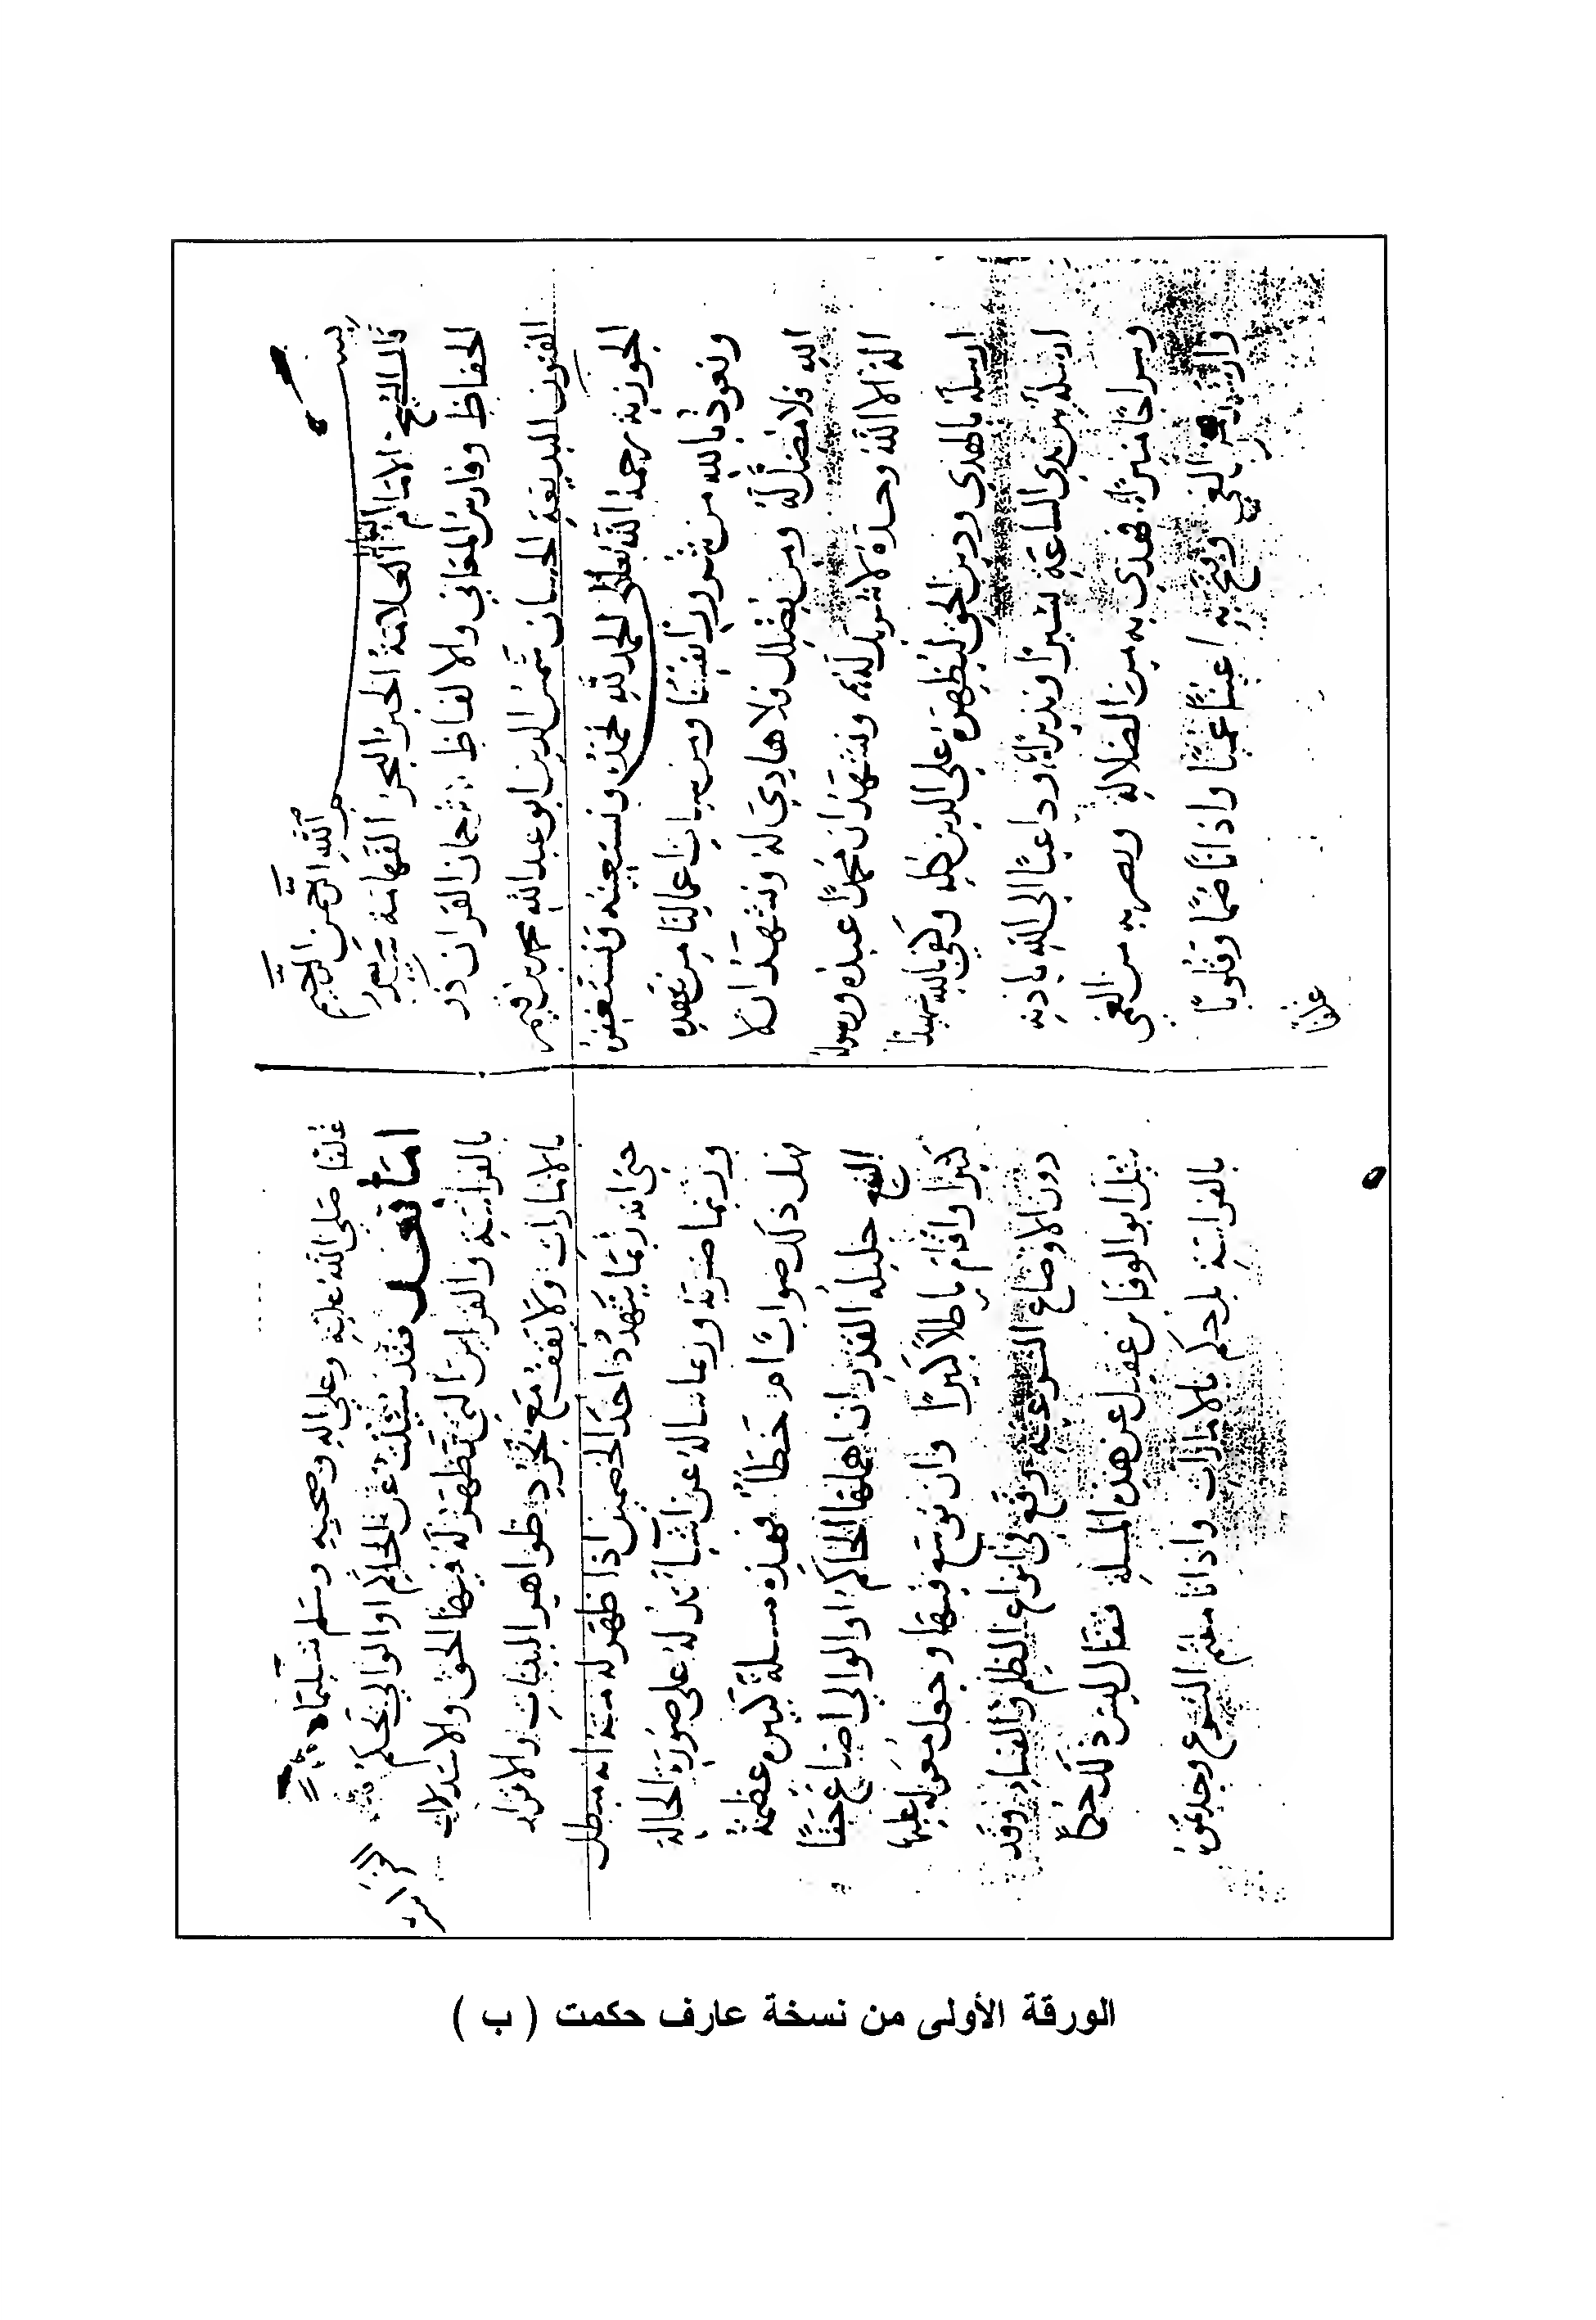 بسم الله الرحمن الرحيم
قال الشيخ الامام العالم العلامة الحبر البحر الفهامة
الحفاظ وفارس المعاني والالفاظ ترجمان القران ذو
الفنون البديعة الحسان شمس الدين ابو عبد الله محمد بن قيم
الجوزية رحمه الله تعالى الحمد لله نحمده ونستعينه ونستغفره
ونعوذ بالله من شرور انفسنا ومن سيات اعمالنا من يهده
الله فلا مضل له ومن يضلل فلا هادي له ونشهد ان لا
اله الا الله وحده لا شريك له ونشهد ان محمدا عبده ورسوله
ارسله بالهدي ودين الحق ليظهره علي الدين كله وكفي بالله شهيدا
ارسله بين يدي الساعة بشيرا ونذيرا وداعيا الى الله باذنه
وسراجا منيرا فهدي به من الضلالة وبصر به من العمى
وارشد به من الغي وفتح به اعينا عميا واذانا صما وقلوبا
غلفا
غلفا صلي الله عليه وعلي اله وصحبه وسلم تسليما
اما بعد فقد سئلت عن الحاكم او الوالي يحكم
بالفراسة والقراين التي تظهر له فيها الحق والاستدلال
بالامارات ولا يقف مع مجرد ظواهر البينات والاقرار
حتى انه ربما يتهدد احد الخصمين اذا ظهر له منه انه مبطل
وربما ضربه وربما ساله عن اشيا تدله على صورة الحال
فهل ذلك صواب ام خطأ فهذه مسلة كبيرة عظيمة
النفع جليلة القدر ان اهملها الحاكم او الوالي اضاع حقا
كثيرا واقام باطلا كبيرا وان توسع فيها وجعل معوله عليها
دون الاوضاع الشرعية وقع في انواع الظلم والفساد وقد
سئل ابو الوفا بن عقيل عن هذه المسلة فقال ليس ذلك حكما
بالفراسة بل حكم بالامارات واذا تاملتم الشرع وجدتموه
الورقة الأولى من نسخة عارف حكمت ( ب )